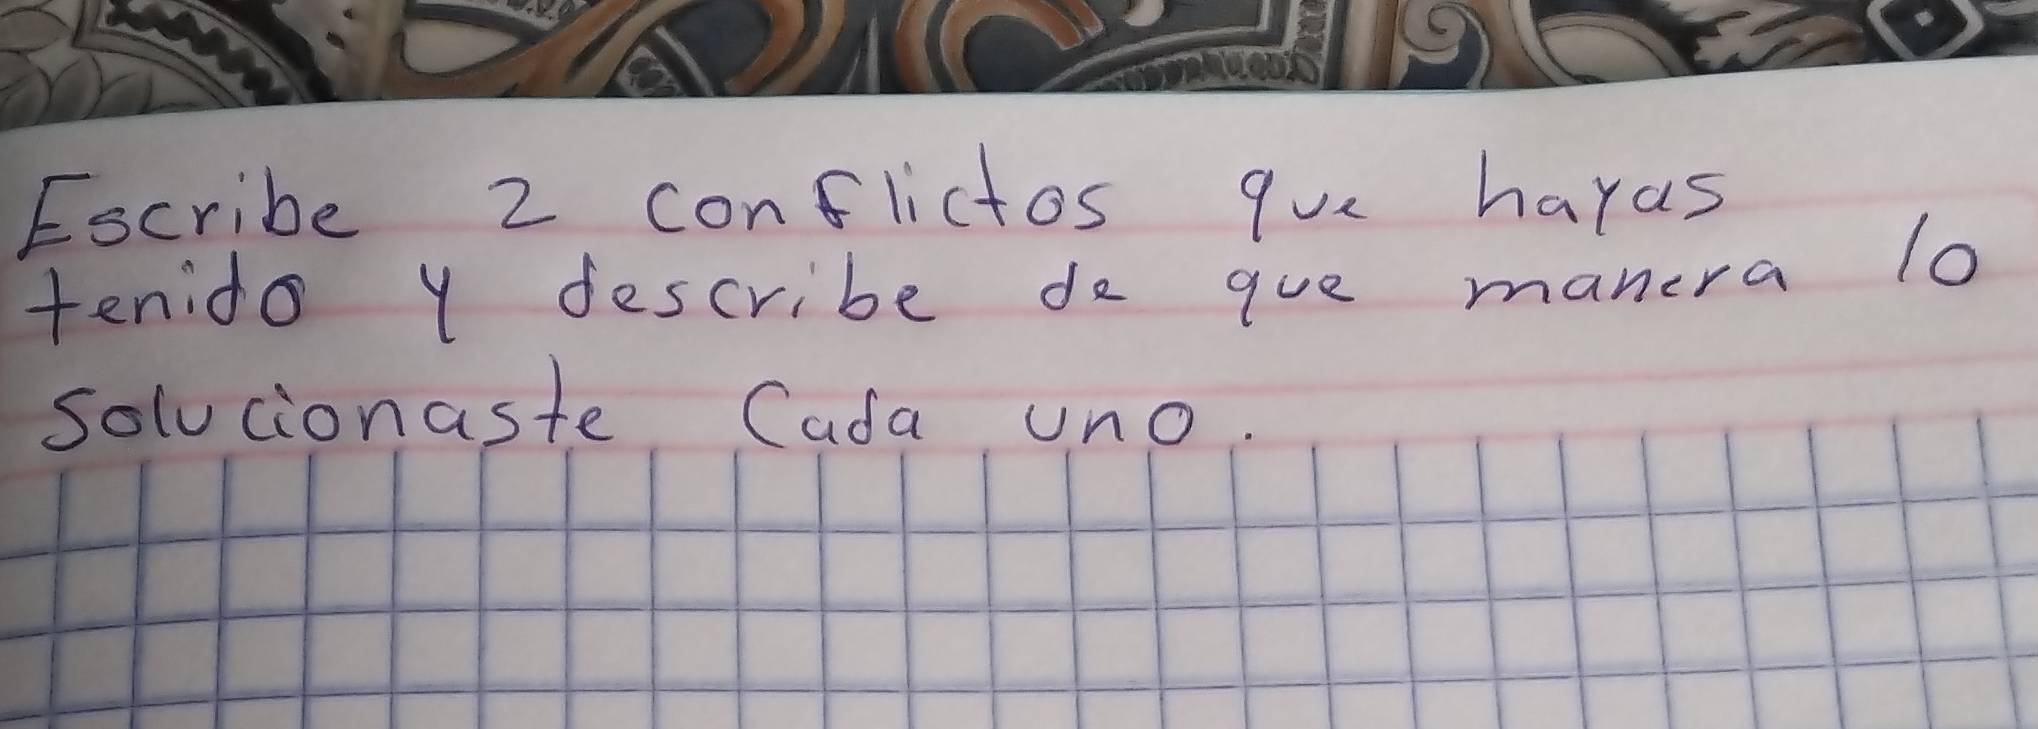 Escribe 2 conflictos que hayas
tenido y describe de que manera lo
solucionaste Cada uno.